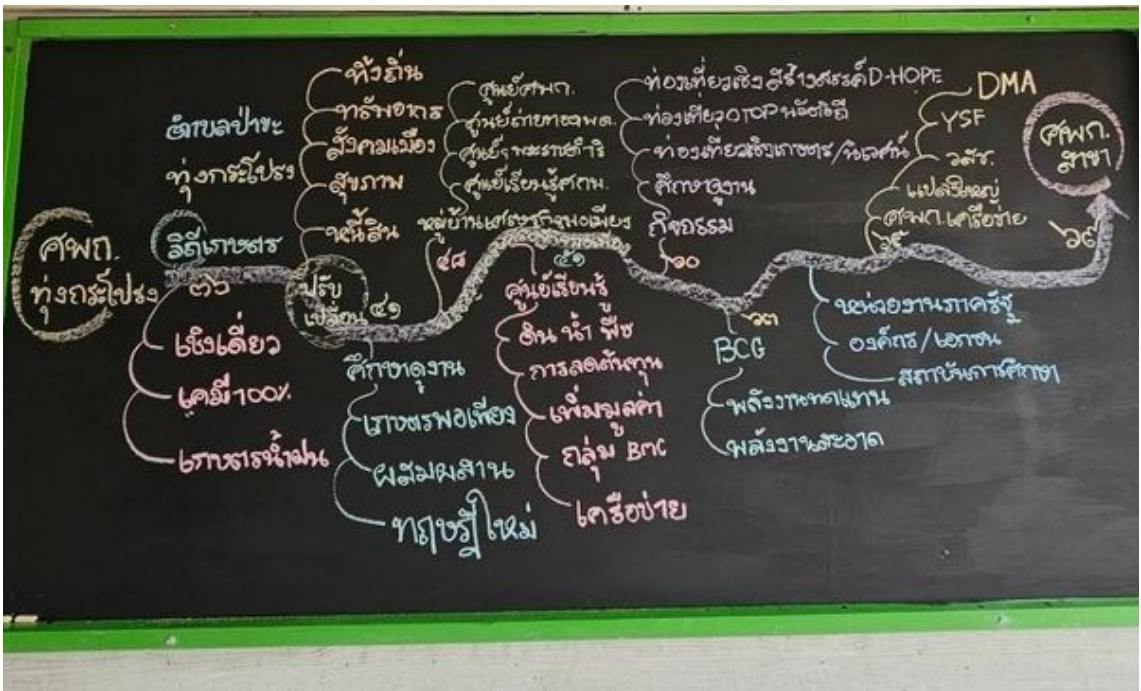 ศพก.
ทุ่งกระโปรง
ตำบลป่าขะ
ทุ่งกระโปรง
วิถีเกษตร
๓๖
เชิงเดี่ยว
เคมี 100%
เกษตรน้ำฝน
ท้องถิ่น
ทรัพยากร
สังคมเมือง
สุขภาพ
หนี้สิน
ปรับ
เปลี่ยน
๔๑
ศึกษาดูงาน
เกษตรพอเพียง
ผสมผสาน
ทฤษฎีใหม่
ศูนย์ศพก.
ศูนย์เรียนรู้ศกม.
หมู่บ้านเศรษฐกิจพอเพียง
๔๘
๕๑
ศูนย์เรียนรู้
ดิน น้ำ พืช
การลดต้นทุน
เพิ่มมูลค่า
กลุ่ม BMC
เครือข่าย
ท่องเที่ยวเชิงสร้างสรรค์ D-HOPE
ท่องเที่ยว OTOP นวัตวิถี
ท่องเที่ยวเชิงเกษตร/นิเวศน์
ศึกษาดูงาน
กิจกรรม
๖๐
๖๓
BCG
พลังงานทดแทน
พลังงานสะอาด
DMA
YSF
วสช.
แปลงใหญ่
ศพก.เครือข่าย
หน่วยงานภาครัฐ
องค์กร/เอกชน
สถาบันการศึกษา
ศพก.
สาขา
๖๙